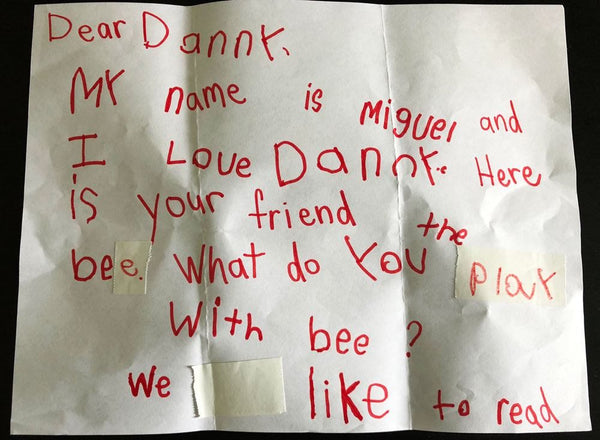 Dear Danny,
My name is Miguel and
I Love Danny. Here
is your friend
bee. What do You the Play
With bee?
We like to read